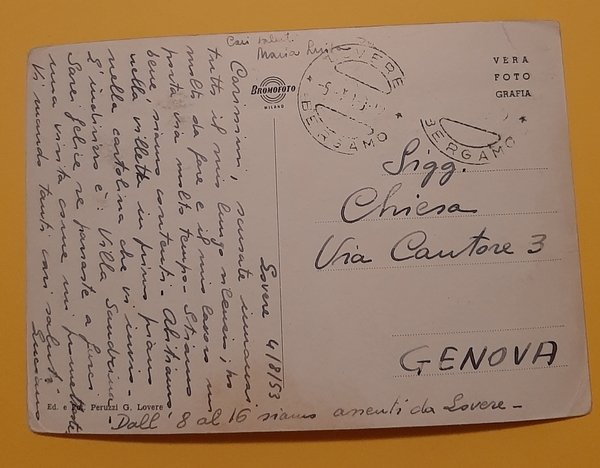 Cari saluti
Maria Luisa
Lovere 4/8/53
Carissimi, scusate innanzi
tutto il mio lungo silenzio; ho
molto da fare e il mio lavoro mi
porta via molto tempo. Stiamo
bene, siamo contenti. Abitiamo
nella villetta in primo piano
nella cartolina che vi invio.
L'indirizzo è: Villa Sandrina.
Sarei felice se passaste a farci
una visita come mi prometteste
Vi mando tanti cari saluti
Luciano
Dall' 8 al 16 siamo assenti da Lovere -
Ed. e Peruzzi G. Lovere
BROMOFOTO
MILANO
LOVERE
BERGAMO
BERGAMO
VERA
FOTO
GRAFIA
Sigg.
Chiesa
Via Cantore 3
GENOVA